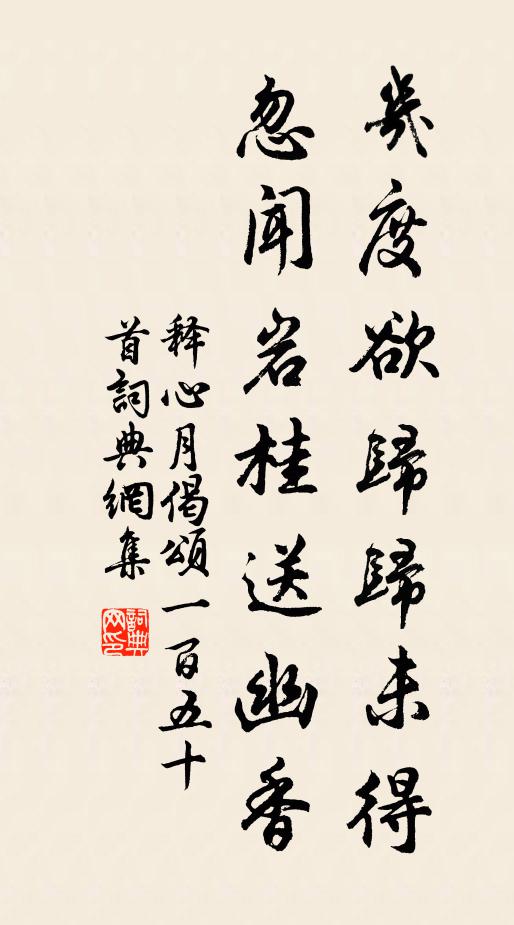 幾度欲歸歸未得
忽聞岩桂送幽香
释心月偈頌一百五十
首詞典網集
詞典
网印